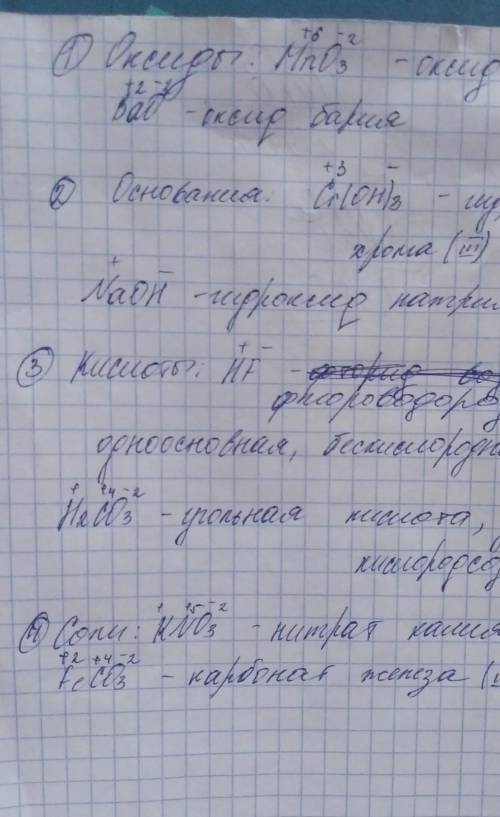 ① Оксиды: Mn⁺⁶O₃⁻² - оксид
Ba⁺²O⁻² - оксид бария
② Основания: Cr⁺³(OH)₃⁻ - ги
хрома (III)
Na⁺OH⁻ - гидроксид натри
③ Кислоты: H⁺F⁻ -
фтороводоро
одноосновная, бескислородн
H₂⁺C⁺⁴O₃⁻² - угольная кислота,
кислородсо
④ Соли: K⁺N⁺⁵O₃⁻² - нитрат калия
Fe⁺²C⁺⁴O₃⁻² - карбонат железа (